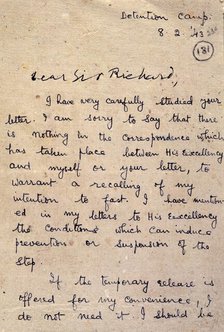 Detention Camp.
8-2-'43
(131)
Dear Sir Richard,
I have very carefully studied your
letter. I am sorry to say that there
is nothing in the correspondence which
has taken place between His Excellency
and myself or your letter, to
warrant a recalling of my
intention to fast. I have mention
ed in my letters to His Excellency
the conditions which can induce
prevention or suspension of the
step.
If the temporary release is
offered for my convenience, I
do not need it. I should be